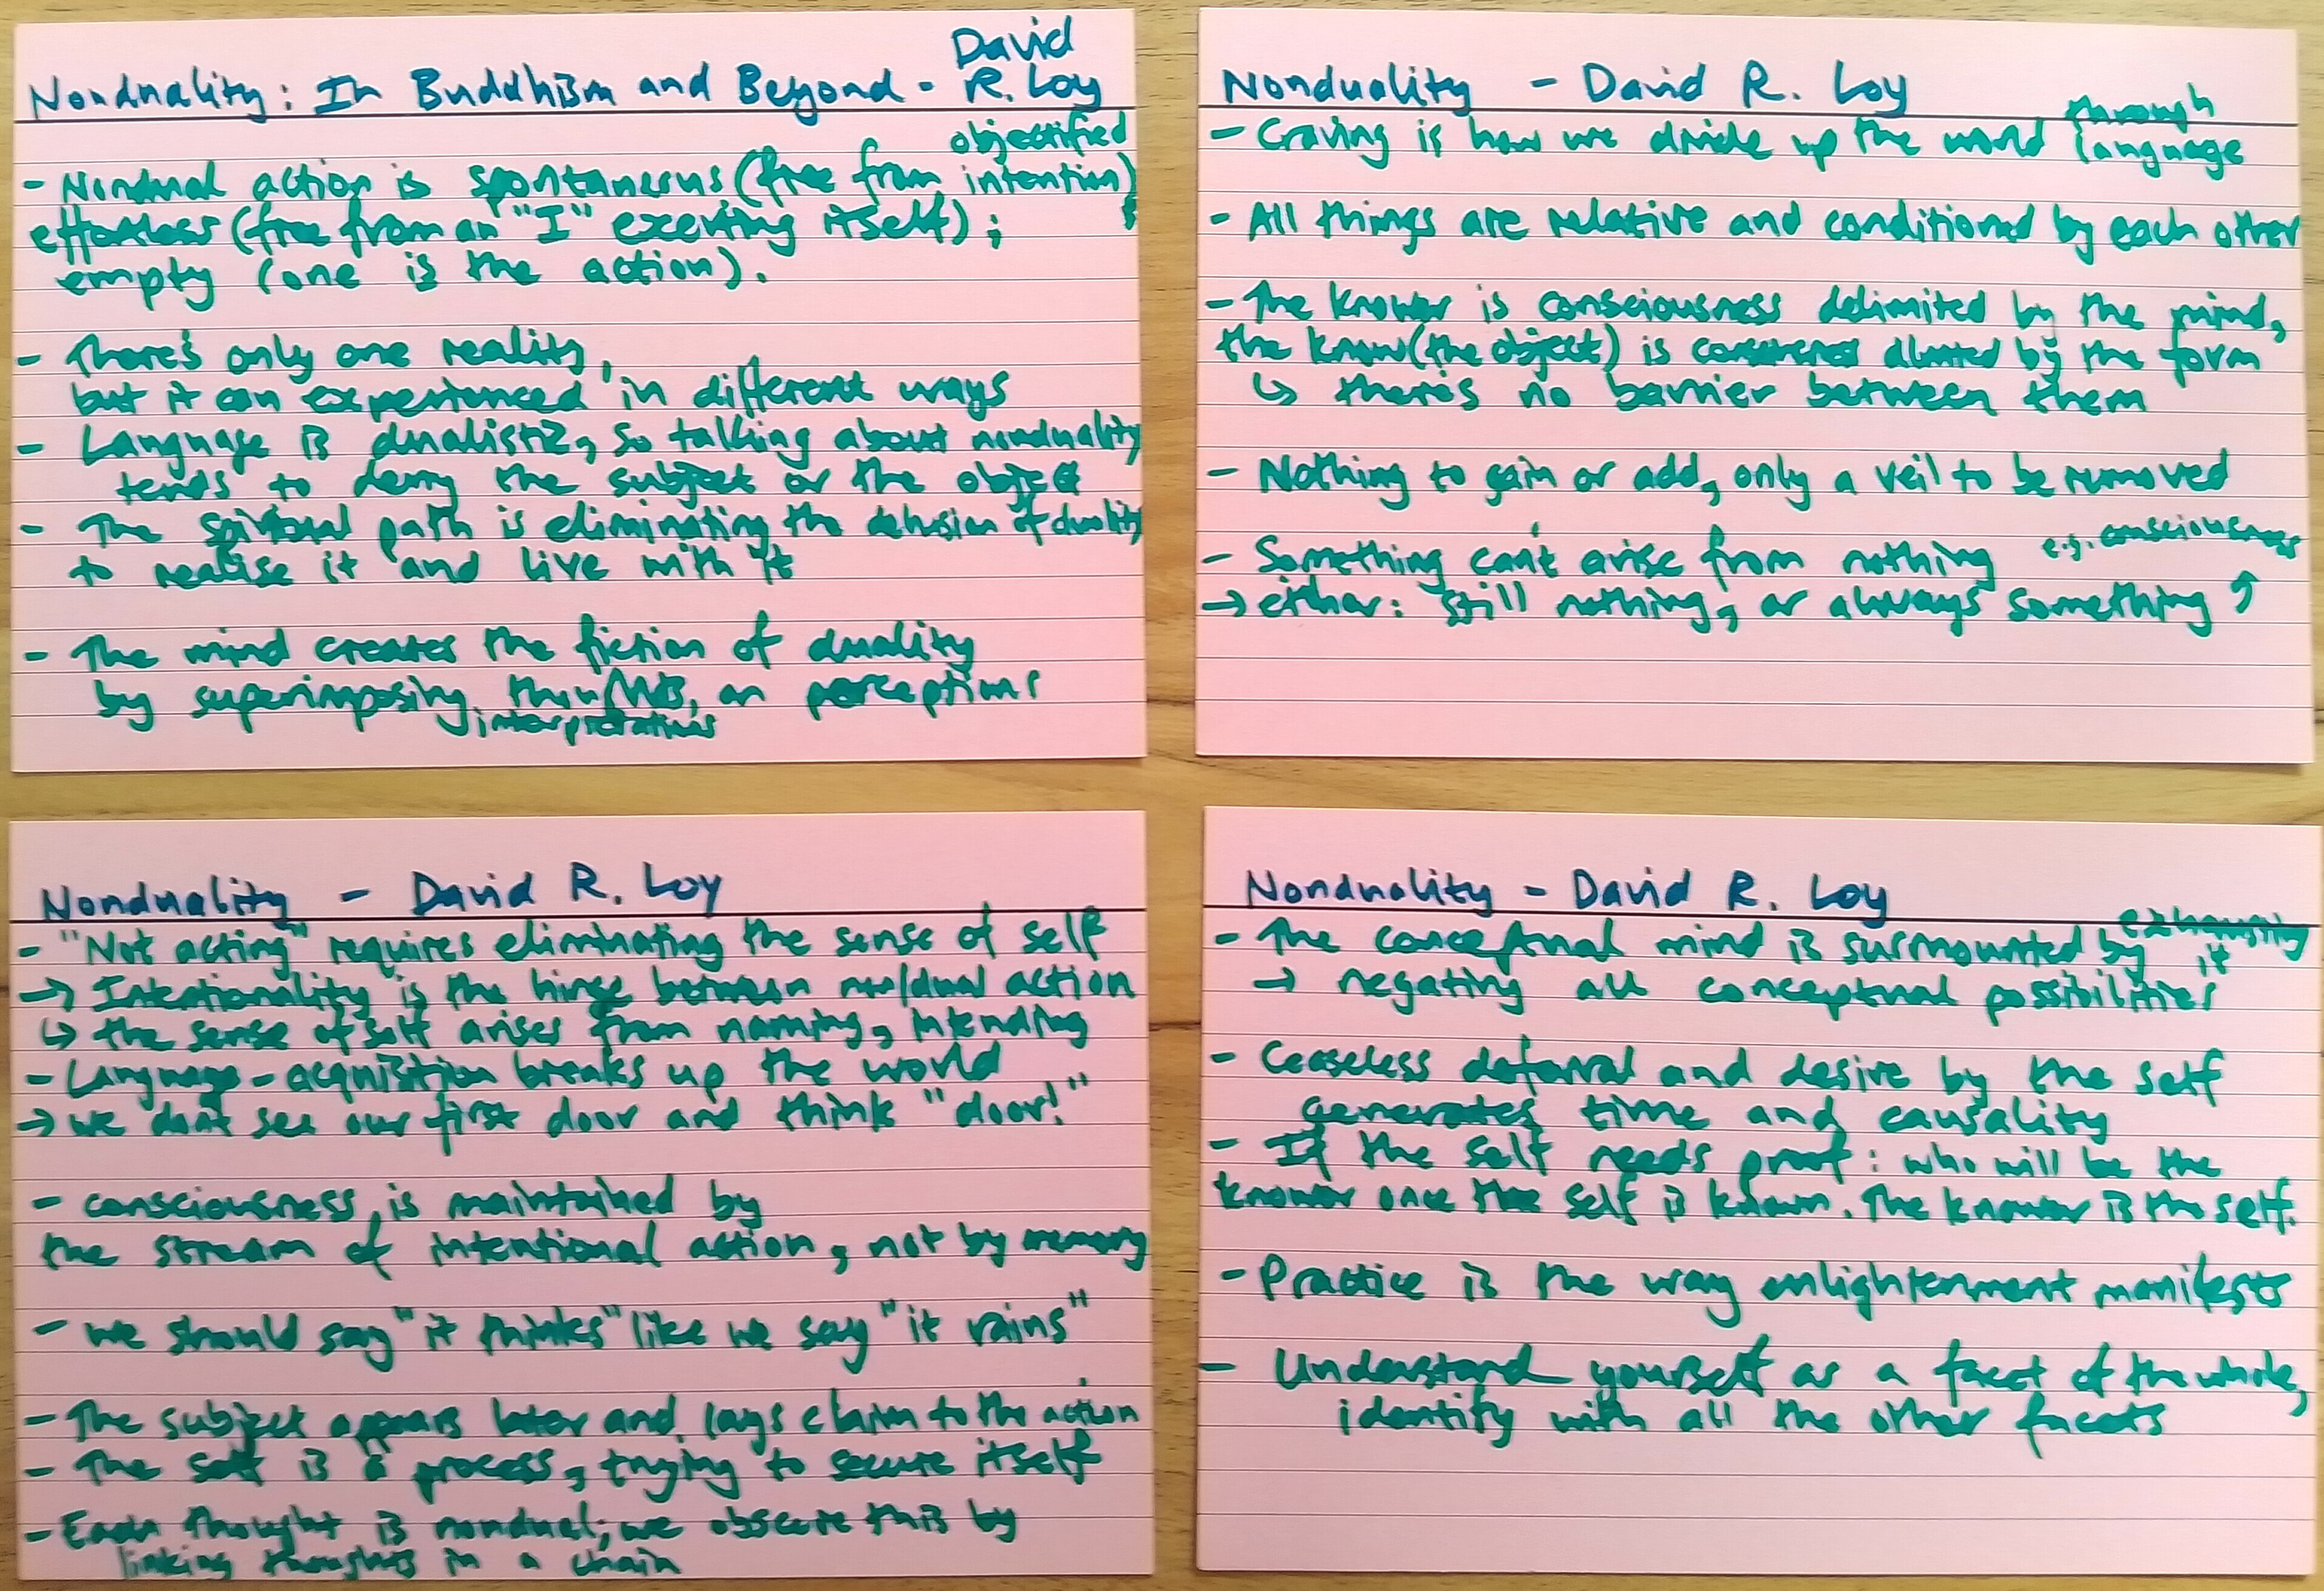 Nonduality: In Buddhism and Beyond - David R. Loy
- Nondual action is spontaneous (free from objectified intention);
effortless (free from an "I" exerting itself);
empty (one is the action).
- There's only one reality,
but it can experienced in different ways
- Language is dualistic, so talking about nonduality
tends to deny the subject or the object
- The spiritual path is eliminating the delusion of duality
to realise it and live with it
- The mind creates the fiction of duality
by superimposing thoughts, on perceptions
interpretations
Nonduality - David R. Loy
- Craving is how we divide up the world through language
- All things are relative and conditioned by each other
- The knower is consciousness delimited by the mind,
the know (the object) is by the form
↳ there's no barrier between them
- Nothing to gain or add, only a veil to be removed
- Something can't arise from nothing e.g. consciousness
→ either: still nothing, or always something ↑
Nonduality - David R. Loy
- "Not acting" requires eliminating the sense of self
→ Intentionality is the hinge between non/dual action
↳ the sense of self arises from naming, intending
- Language-acquisition breaks up the world
→ we don't see our first door and think "door!"
- consciousness is maintained by
the stream of intentional action, not by memory
- we should say "it thinks" like we say "it rains"
- The subject appears later and lays claim to the action
- The self is a process, trying to secure itself
- Each thought is nondual; we obscure this by
linking thoughts in a chain
Nonduality - David R. Loy
- The conceptual mind is surmounted by exhausting it
→ negating all conceptual possibilities
- Ceaseless deferral and desire by the self
generates time and causality
- If the self needs proof: who will be the
knower once the self is known. The knower is the self.
- Practice is the way enlightenment manifests
- Understand yourself as a facet of the whole,
identify with all the other facets